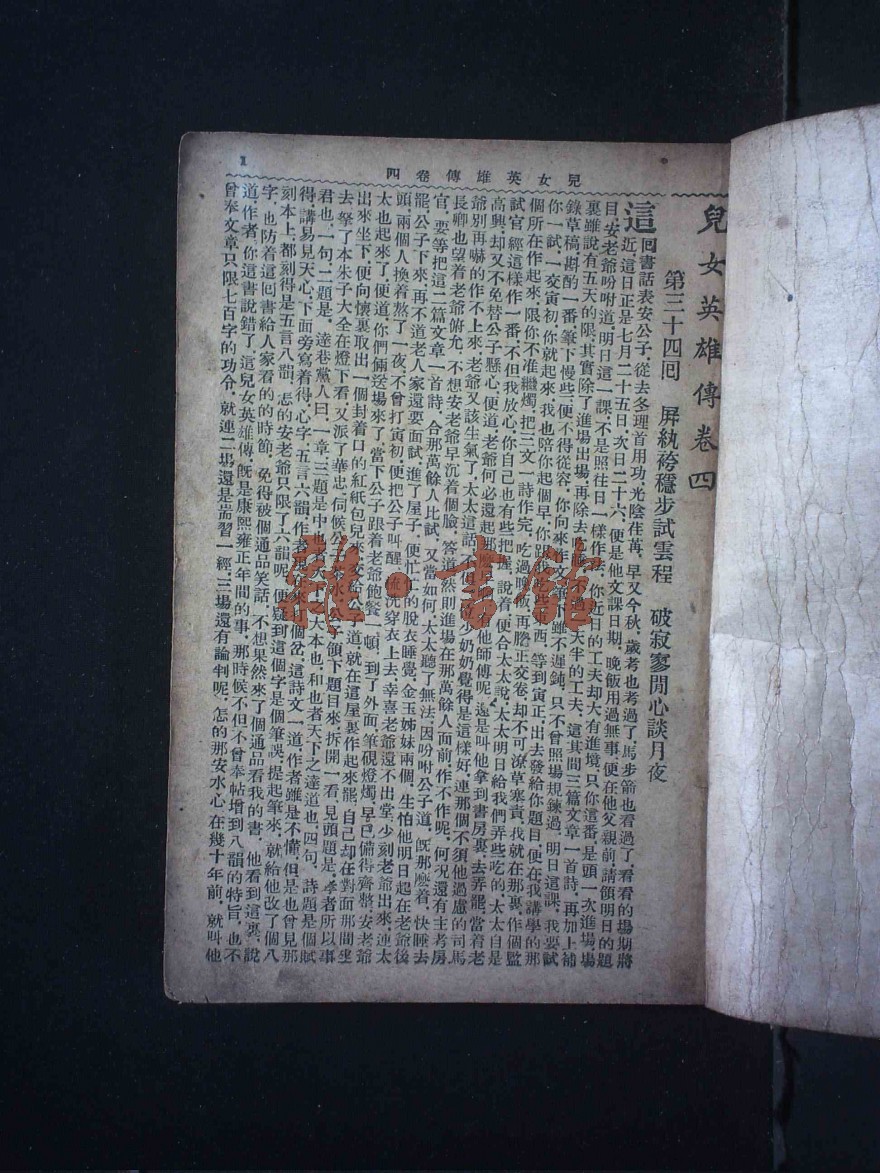 兒女英雄傳卷四
1
兒女英雄傳卷四
第三十四回　屏紈袴穩步試雲程　破寂寥閒心談月夜
這回書話表安公子從去冬理首用功光陰荏苒早又今秋歲考也考過了馬步箭也看過了看看的場期將
近這日正是七月二十五日次日二十六便是他文課日期晚飯用過無事便在他父親前請領明日的題
目安老爺吩咐道明日這一課不是照往日一樣作法你近日的工夫却大有進境只你這番是頭一次進場場
裏雖說有五天的限其實除了進場出場再除去
天半的工夫這其間三篇文章一首詩再加上補
錄草稿斟酌一番筆下慢些便不得從容你向來作
下雖不遲鈍只不曾照場規鍊過明日這課我要試
你一試一交寅初你就起來我也陪你起個早你跟
西等到寅正出去發給你題目便在我講學的那
個所在作起來限你不准繼燭把三文一詩作完吃過晚飯再謄正交卷却不可潦草塞責我就在那裏作個監
試官經這樣作一番不但我放心你自己也有些把握說着便合太太說太太明日給我們弄些吃的太太自是
高興却又不免替公子懸心便道老爺何必還起那
他師傅呢還是叫他拿到書房裏去弄罷當着老
爺別再嚇的作不上來老爺又該生氣了太太這話
少奶奶覺得是這樣好連那個不須他過慮的司馬
長卿也望着老爺俯允不想安老爺早沉着個臉答道然則進場在那萬餘人面前作不作呢何况還有主考房
官要等把這三篇文章一首詩合那萬餘人比試又當如何太太聽了無法因吩咐公子道既那麽着快睡去
罷公子下來再不道老人家還要面試進了屋子便忙
的脫衣睡覺金玉姊妹兩個生怕他明日起在老爺後
頭兩個人換着熬了一夜不曾打寅初便把公子叫醒梳洗穿衣上去幸喜老爺還不出堂少刻老爺出來連太
太也起來了便道你們倆送場來了當下公子跟着老爺飽餐一頓到了外面筆硯燈燭早已備得齊整安老爺
出來坐下便向懷裏取出一個封着口的紅紙包兒來交給公
道就在這屋裏作起來罷自己却在對面那間坐
去拏了本朱子大全在燈下看又派了華忠伺候公子茶水公子領下題目來拆開一看見頭題是孝者所以事
君也一句二題是達巷黨人曰一章三題是中也者天下之大本也和也者天下之達道也四句詩題是個賦
得講易見天心下面旁寫着得心字五言六韻作者
打個岔這詩文一道作者雖是不懂但是也曾見那
刻本上都刻得是五言八韻怎的安老爺只限了六韻呢便疑到這個字是個筆誤提起筆來就給他改了個八
字也防着這回書給人家看的的時節免得被個通品笑話不想果然來了個通品看我的書他看到這裏說
道作者你這書說錯了這兒女英雄傳既是康熙雍正年間的事那時候不但不曾奉帖增到八韻的特旨也不
曾奉文章只限七百字的功令就連二場還是耑習一經三場還有論判呢怎的那安水心在幾十年前就叫他
雜·書館